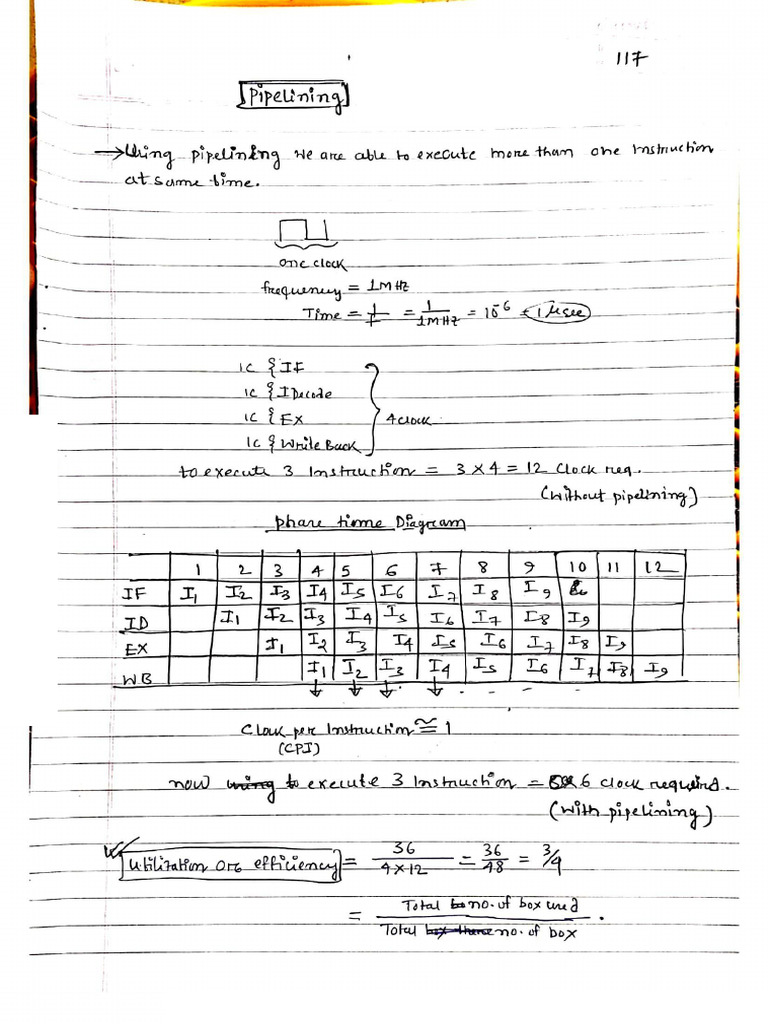 117
Pipelining
→ Using pipelining we are able to execute more than one instruction
at same time.
one clock
frequency = 1 MHz
Time = 1/f = 1/1MHz = 10⁻⁶ = 1 μsec
1C { IF
1C { IDecode
1C { EX
1C { Write Back
} 4 clock
to execute 3 Instruction = 3 × 4 = 12 Clock req.
(without pipelining)
phase time Diagram
1 2 3 4 5 6 7 8 9 10 11 12
IF I1 I2 I3 I4 I5 I6 I7 I8 I9
ID I1 I2 I3 I4 I5 I6 I7 I8 I9
EX I1 I2 I3 I4 I5 I6 I7 I8 I9
WB I1 I2 I3 I4 I5 I6 I7 I8 I9
Clock per Instruction ≅ 1
(CPI)
now to execute 3 Instruction = 6 clock required.
(with pipelining)
Utilization or efficiency = 36 / 4×12 = 36/48 = 3/4
= Total no. of box used / Total no. of box .